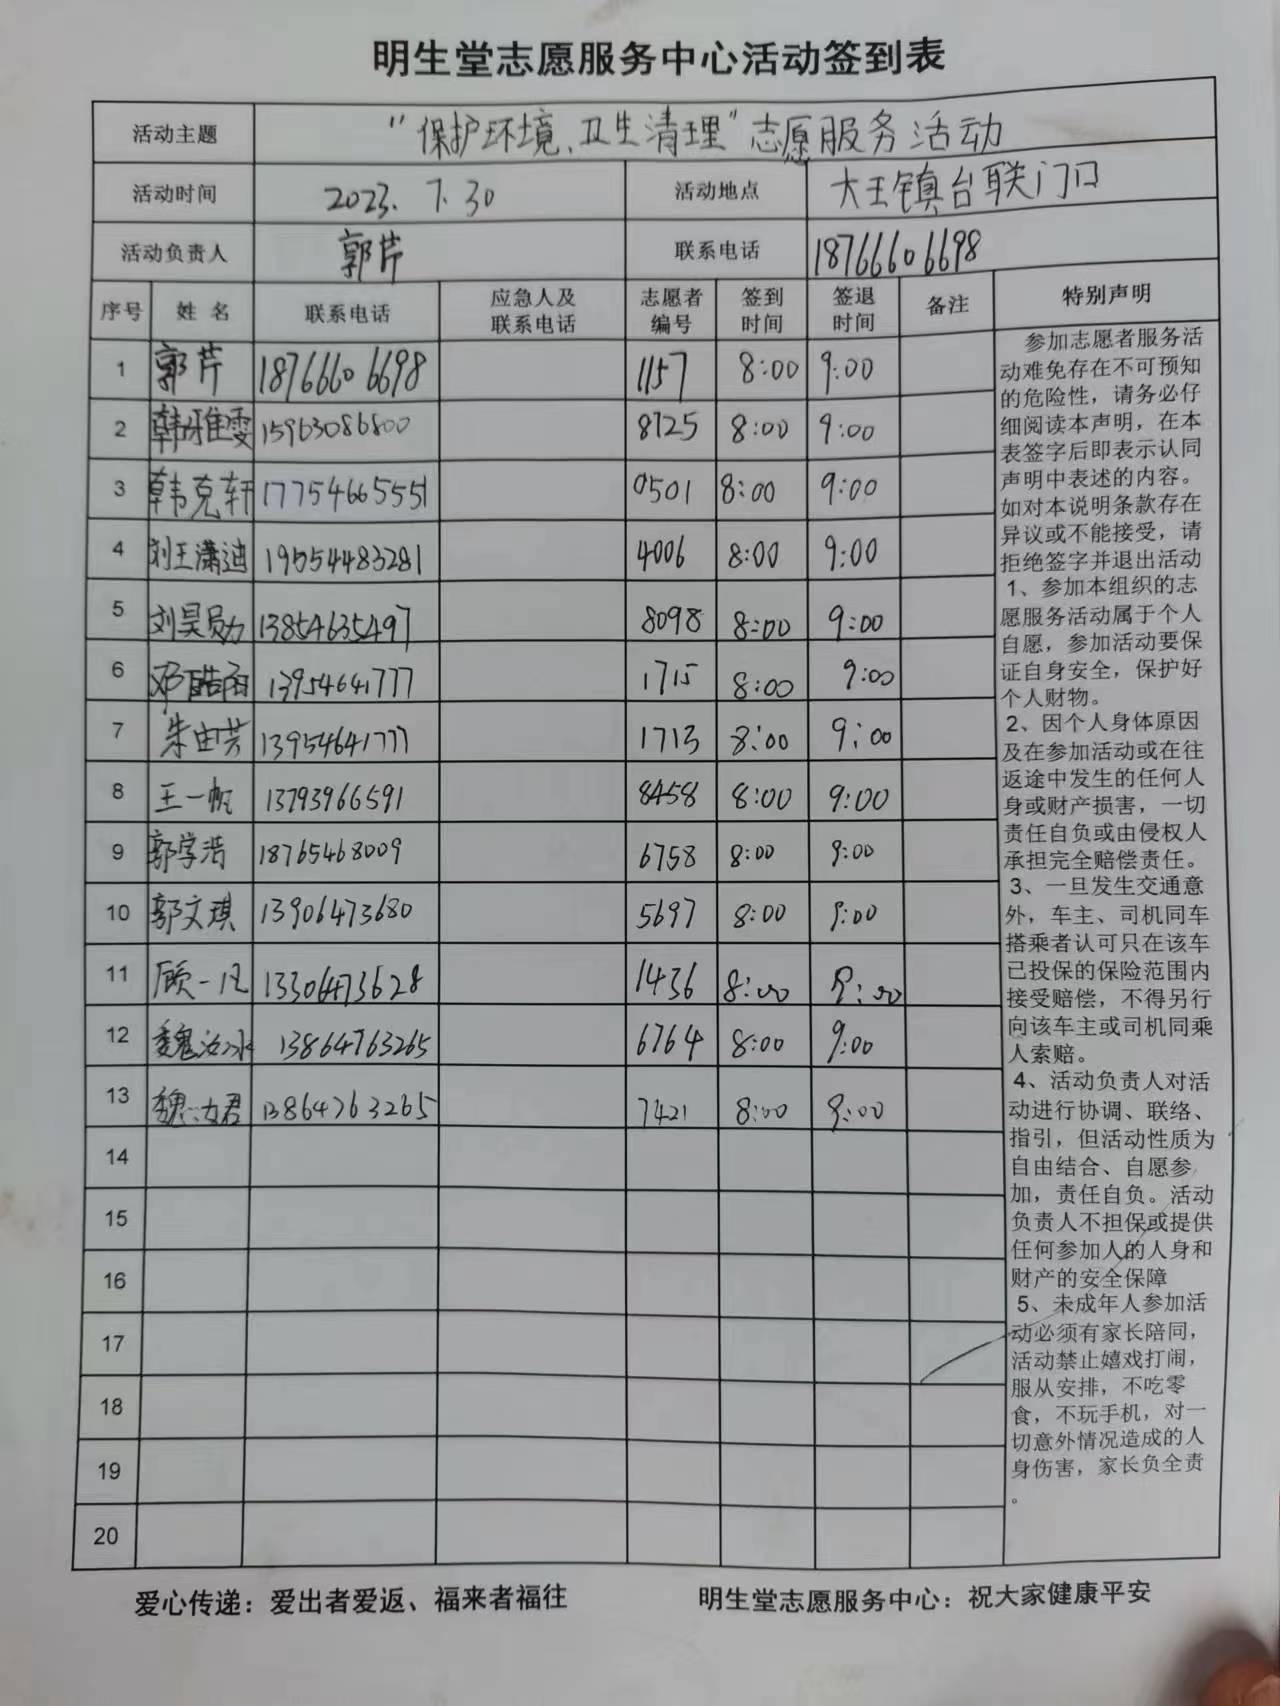 明生堂志愿服务中心活动签到表
活动主题 “保护环境、卫生清理”志愿服务活动
活动时间 2023.7.30 活动地点 大王镇台联门口
活动负责人 郭芹 联系电话 18766606698
序号 姓名 联系电话 应急人及联系电话 志愿者编号 签到时间 签退时间 备注 特别声明
1 郭芹 18766606698 1157 8:00 9:00
2 韩雅雯 15963086800 8725 8:00 9:00
3 韩克轩 17754665551 0501 8:00 9:00
4 刘王潇迪 19554483281 4006 8:00 9:00
5 刘昊勋 13854635497 8098 8:00 9:00
6 邓皓雨 13954641777 1715 8:00 9:00
7 朱由芳 13954641777 1713 8:00 9:00
8 王一帆 13793966591 8458 8:00 9:00
9 郭学浩 18765468009 6758 8:00 9:00
10 郭文琪 13906473680 5697 8:00 9:00
11 顾一凡 13306473628 1436 8:00 9:00
12 魏汝冰 13864763265 6764 8:00 9:00
13 魏汝君 13864763265 7421 8:00 9:00
14
15
16
17
18
19
20
参加志愿者服务活
动难免存在不可预知
的危险性，请务必仔
细阅读本声明，在本
表签字后即表示认同
声明中表述的内容。
如对本说明条款存在
异议或不能接受，请
拒绝签字并退出活动
1、参加本组织的志
愿服务活动属于个人
自愿，参加活动要保
证自身安全，保护好
个人财物。
2、因个人身体原因
及在参加活动或在往
返途中发生的任何人
身或财产损害，一切
责任自负或由侵权人
承担完全赔偿责任。
3、一旦发生交通意
外，车主、司机同车
搭乘者认可只在该车
已投保的保险范围内
接受赔偿，不得另行
向该车主或司机同乘
人索赔。
4、活动负责人对活
动进行协调、联络、
指引，但活动性质为
自由结合、自愿参
加，责任自负。活动
负责人不担保或提供
任何参加人的人身和
财产的安全保障
5、未成年人参加活
动必须有家长陪同，
活动禁止嬉戏打闹，
服从安排，不吃零
食，不玩手机，对一
切意外情况造成的人
身伤害，家长负全责
。
爱心传递：爱出者爱返、福来者福往 明生堂志愿服务中心：祝大家健康平安